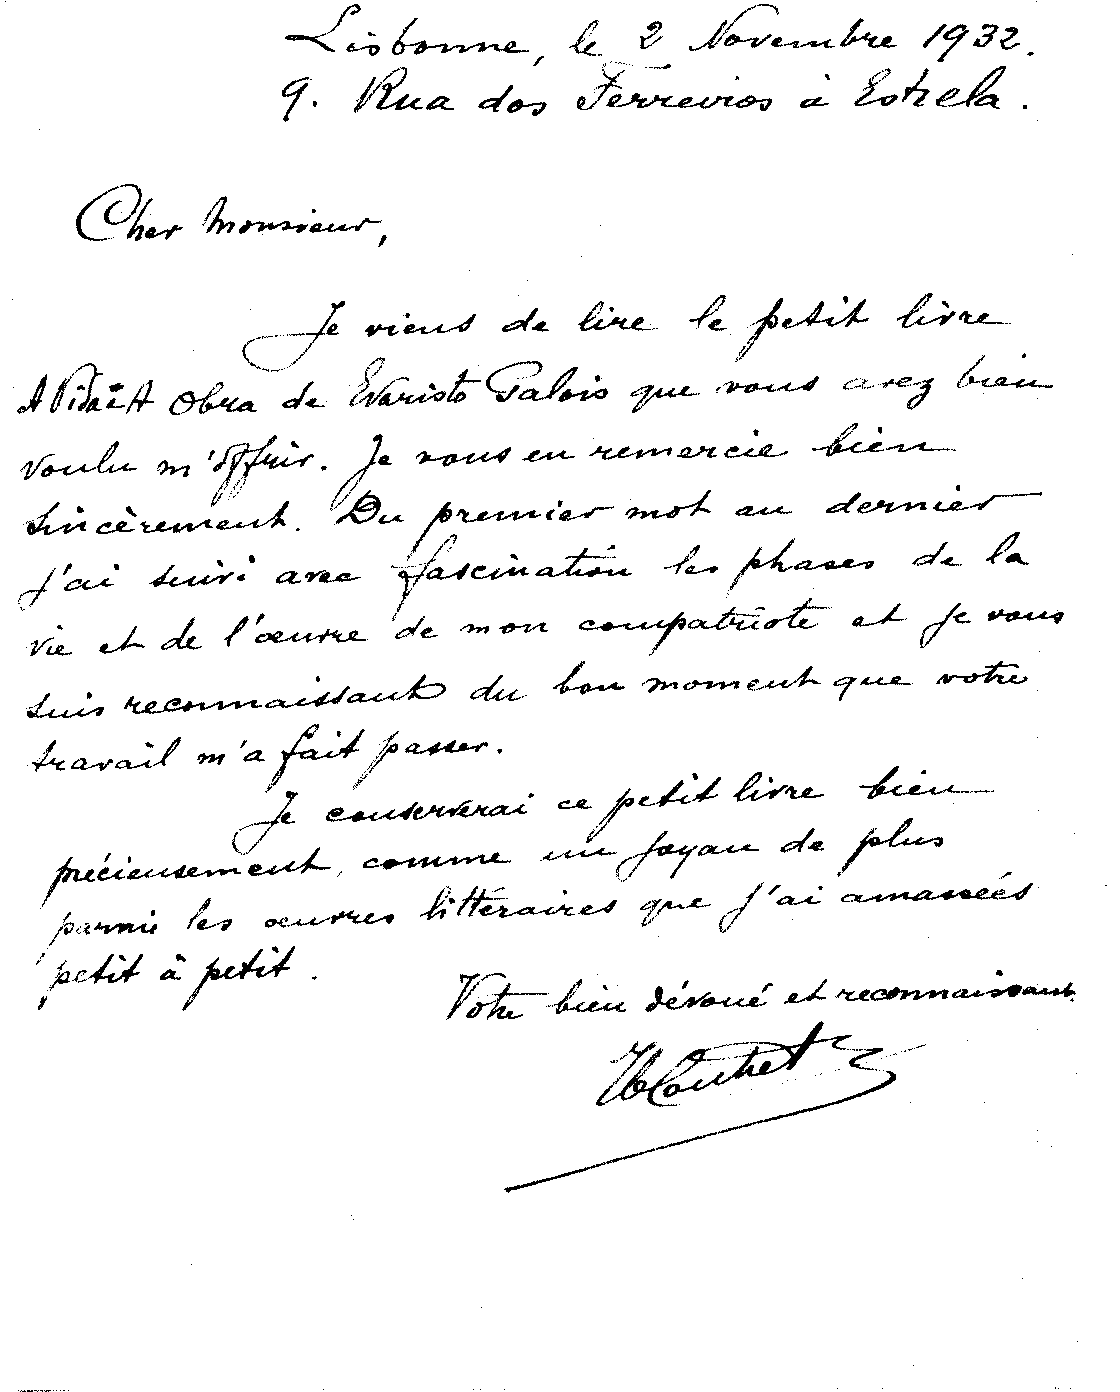 Lisbonne, le 2 Novembre 1932.
9. Rua dos Ferreiros à Estrela.
Cher Monsieur,
Je viens de lire le petit livre
A Vida e A Obra de Evaristo Galois que vous avez bien
voulu m'offrir. Je vous en remercie bien
sincèrement. Du premier mot au dernier
j'ai suivi avec fascination les phases de la
vie et de l'œuvre de mon compatriote et je vous
suis reconnaissant du bon moment que votre
travail m'a fait passer.
Je conserverai ce petit livre bien
précieusement, comme un joyau de plus
parmi les œuvres littéraires que j'ai amassées
petit à petit.
Votre bien dévoué et reconnaissant